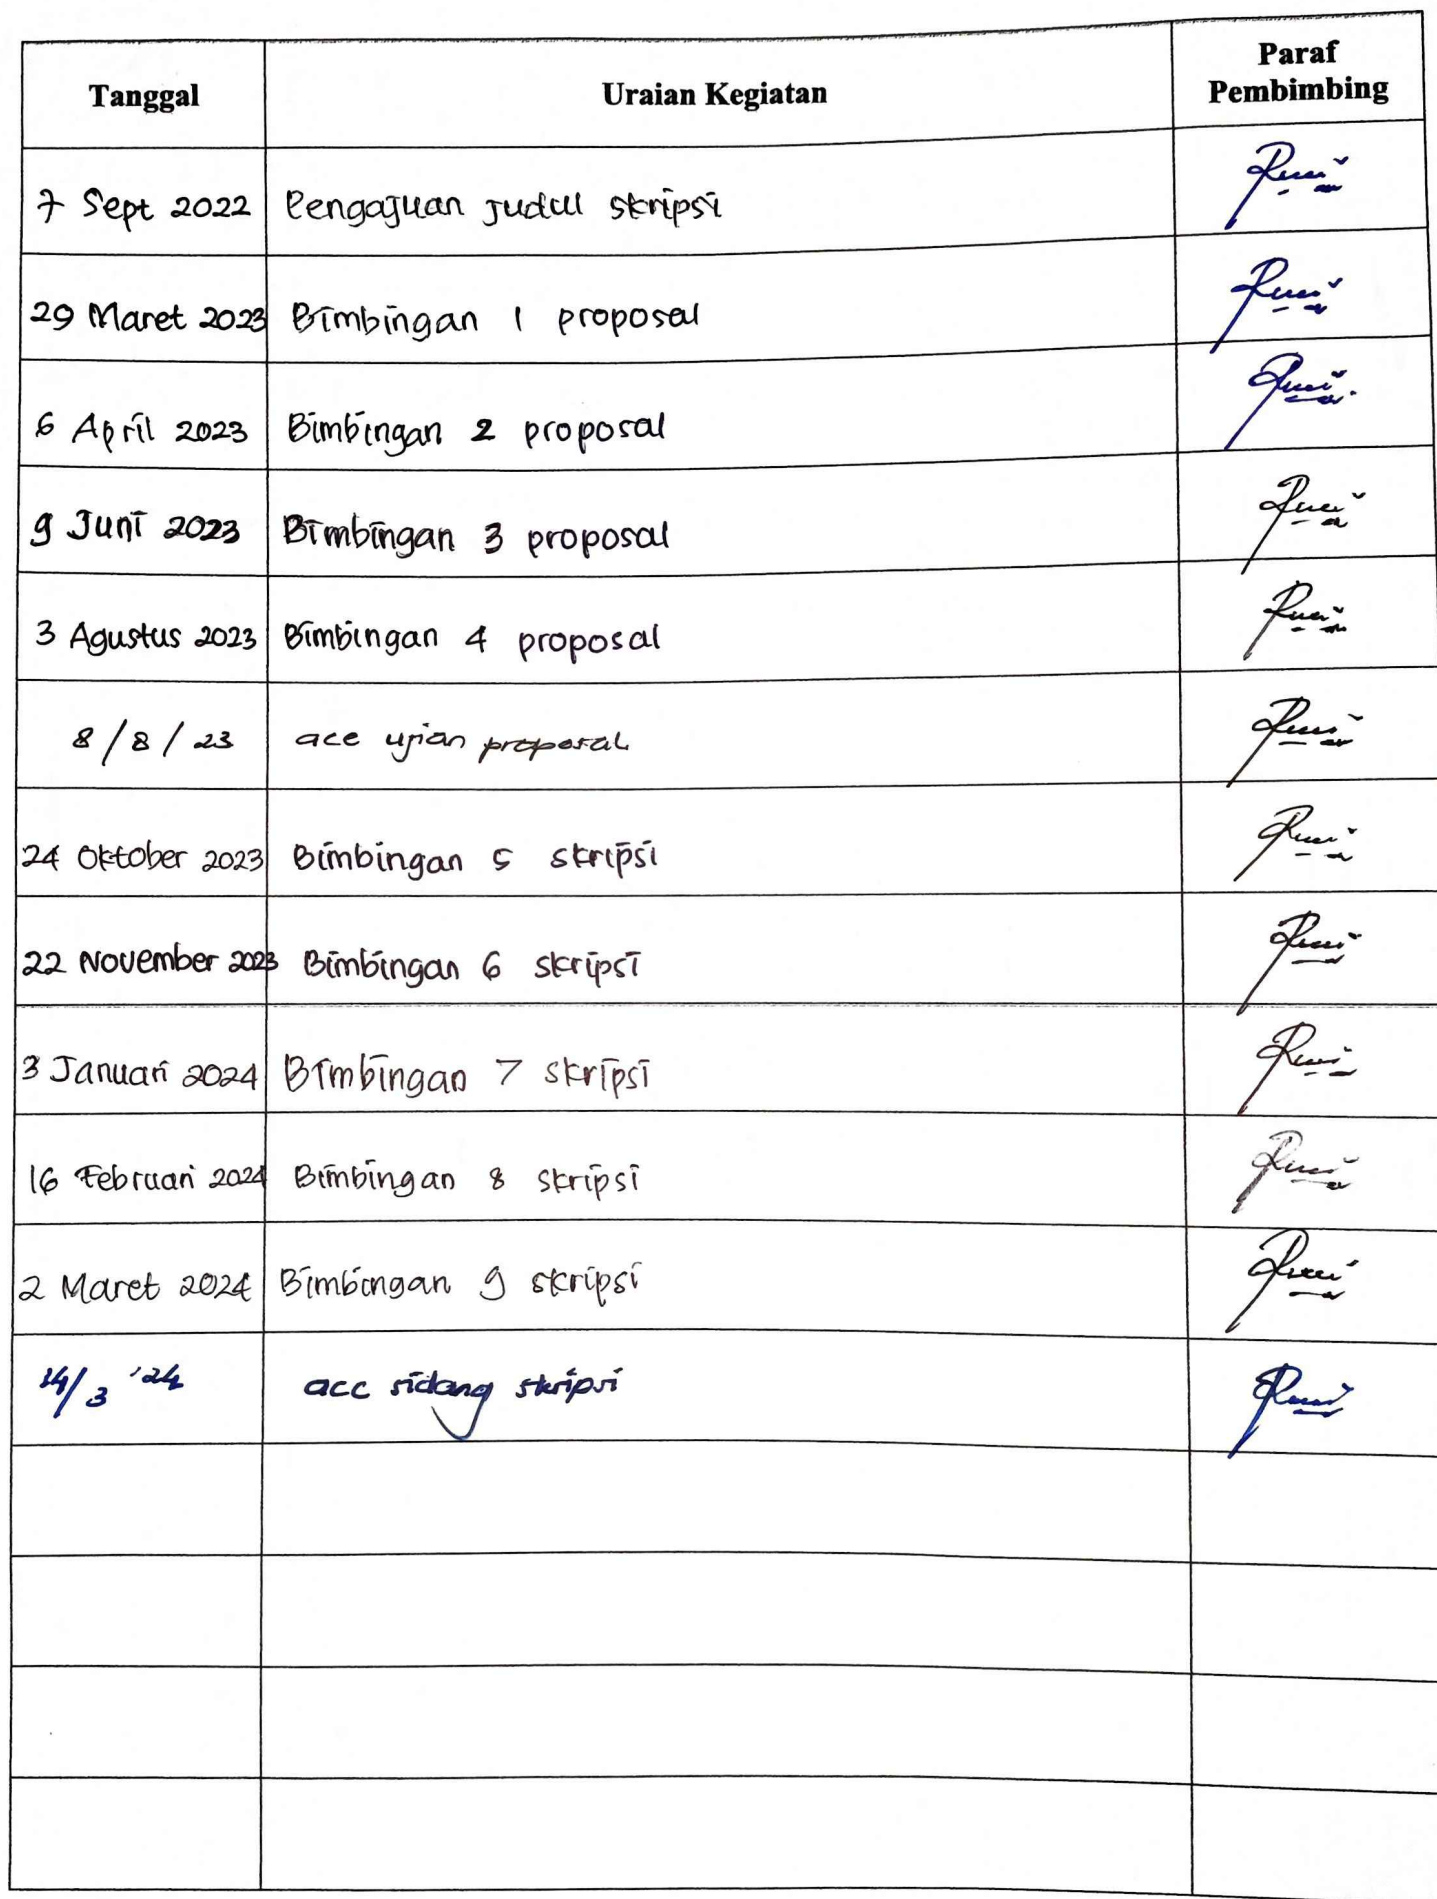 Tanggal Uraian Kegiatan Paraf
Pembimbing
7 Sept 2022 Pengajuan Judul skripsi
29 Maret 2023 Bimbingan 1 proposal
6 April 2023 Bimbingan 2 proposal
9 Juni 2023 Bimbingan 3 proposal
3 Agustus 2023 Bimbingan 4 proposal
8/8/23 acc ujian proposal
24 Oktober 2023 Bimbingan 5 skripsi
22 November 2023 Bimbingan 6 skripsi
3 Januari 2024 Bimbingan 7 skripsi
16 Februari 2024 Bimbingan 8 skripsi
2 Maret 2024 Bimbingan 9 skripsi
14/3 '24 acc sidang skripsi